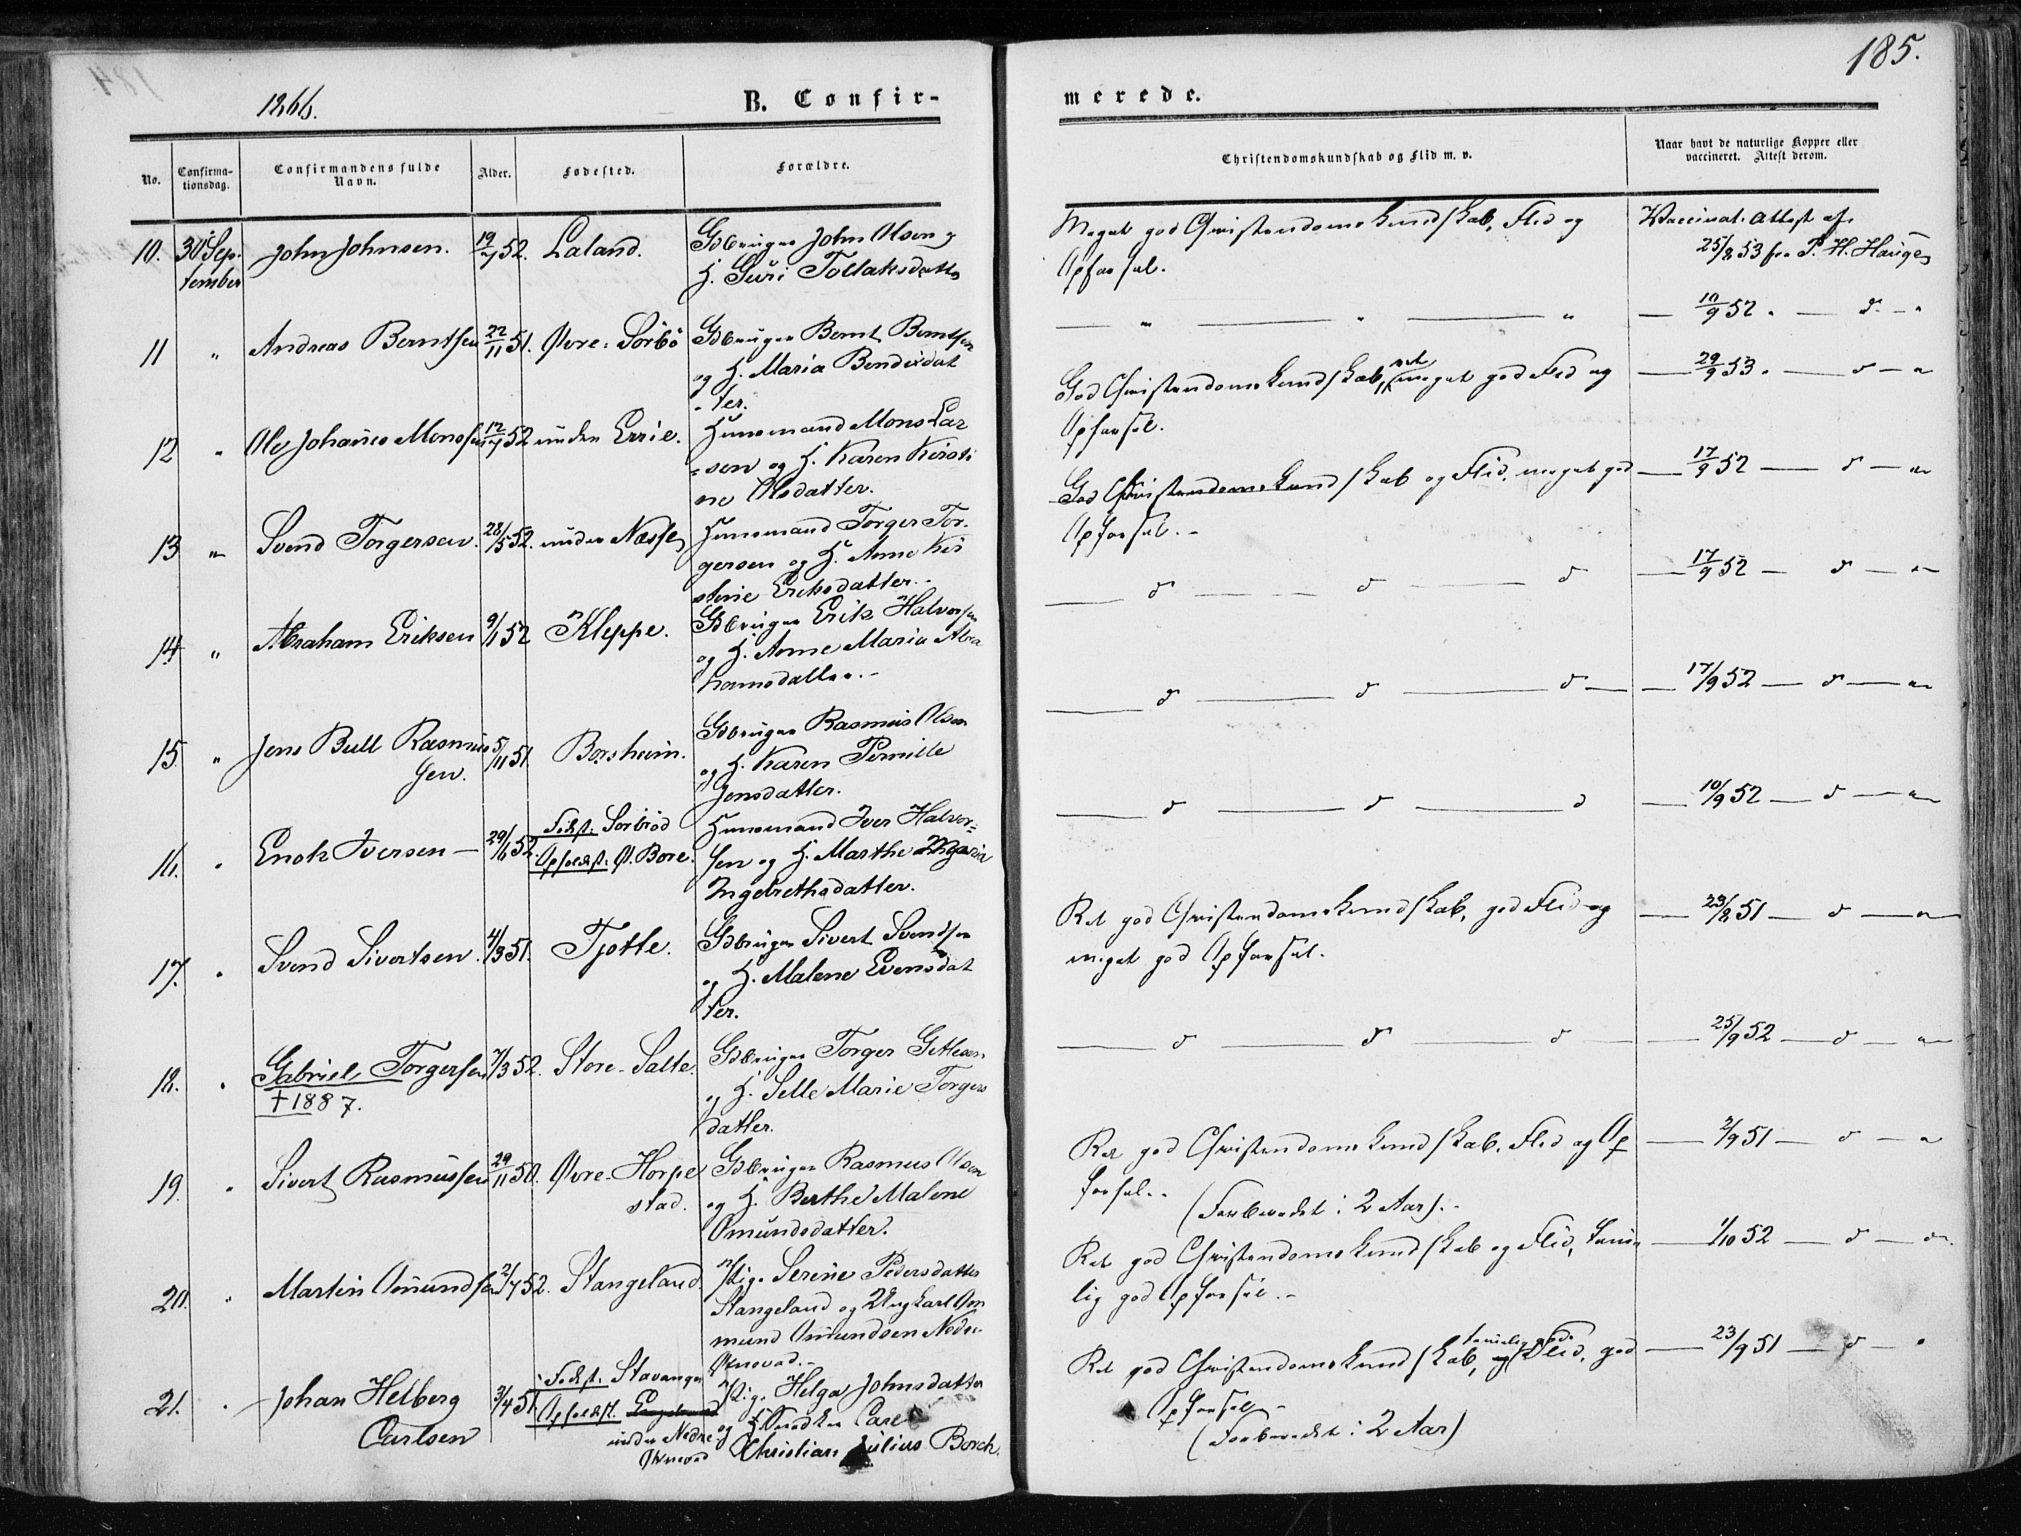 1866.
B. Confir-
No.
Confirma-
tionsdag.
Confirmandens fulde
Navn.
Alder.
Fødested.
Forældre.
10. 30 Sep- John Johnsen. 19/7 52. Laland. Gdbruger John Olsen og
tember H. Guri Tollaksdatter
11 " Andreas Berntsen 22/11 51. Øvre-Sørbø Gdbruger Bernt Berntsen
og H. Maria Bendixdat
-ter.
12 " Ole Johanes Monssen 12/7 52 under Errie. Huusmand Mons Lar
=sen og H. Karen Kirsti
ne Olsdatter.
13 " Svend Torgersen. 28/5 52. under Næsse Huusmand Torger Tor-
gersen og H. Anne Kir
stine Eriksdatter.-
14 " Abraham Eriksen 9/1 52 Kleppe. Gdbruger Erik Halvorsen
og H. Anne Maria Abra
hamsdatter.-
15. " Jens Bull Rasmus 5/11 51. Borsheim. Gdbruger Rasmus Olsen
sen. og H. Karen Pernille
Jensdatter.
16. " Enok Iversen — 29/6 52. Fødst: Sørbrød Huusmand Iver Halvor=
Opholdst: Ø. Bore. sen og H. Marthe Maria
Ingebrethsdatter.
17. " Svend Sivertsen. 4/3 51. Tjøtte. Gdbruger Sivert Svendsen
og H. Malene Evensdat
ter.
18. " Gabriel Torgersen 7/3 52. Store-Salte. Gdbruger Torger Gitlesen
† 1887. og H. Selle Marie Torgers
datter.
19. " Sivert Rasmussen 29/11 50. Øvre-Horpe Gdbruger Rasmus Olsen
stad. og H. Berthe Malene
Omundsdatter.
20. " Martin Omundsen 2/7 52. Stangeland. Pige Serine Pedersdatter
Stangeland og Ungkarl Om
mund Omundsen Nedre
Øxnevad.-
21. " Johan Helberg 3/4 51. Fødst: Stavanger Pige Helga Johnsdatter
Carlsen Opholdst. under Nedre og Carl
Øxnevad Christian Julius Borch.
185.
merede.
Christendomskundskab og Flid m. v.
Naar havt de naturlige Kopper eller
vaccineret. Attest derom.
Meget god Christendomskundskab, Flid og Vaccinat. Attest af
Opførsel. 25/8 53 fra P. H. Hauge
— " — " — " — 10/9 52 . — d. — "
God Christendomskundskab, ret meget god Flid og — 29/9 53 . — d — "
Opførsel.
God Christendomskundskab og Flid, meget god — 17/9 52 — d — "
Opførsel.-
— d — d — d — 17/9 52 — d — "
— d — d — d — 17/9 52 — d — "
— d — d — d — 10/9 52 — d — "
Ret god Christendomskundskab, god Flid og — 23/8 51 — d — "
meget god Opførsel.
— d — d — d — 25/9 52 — d — "
Ret god Christendomskundskab, Flid og Op — 2/9 51 — d — "
førsel.-
(Forberedet i 2 Aar).-
Ret god Christendomskundskab og Flid, temme — 1/10 52 — d — "
lig god Opførsel.-
Ret god Christendomskundskab, temmelig god Flid, god — 23/9 51 — d "
Opførsel.-
(Forberedet i 2 Aar)